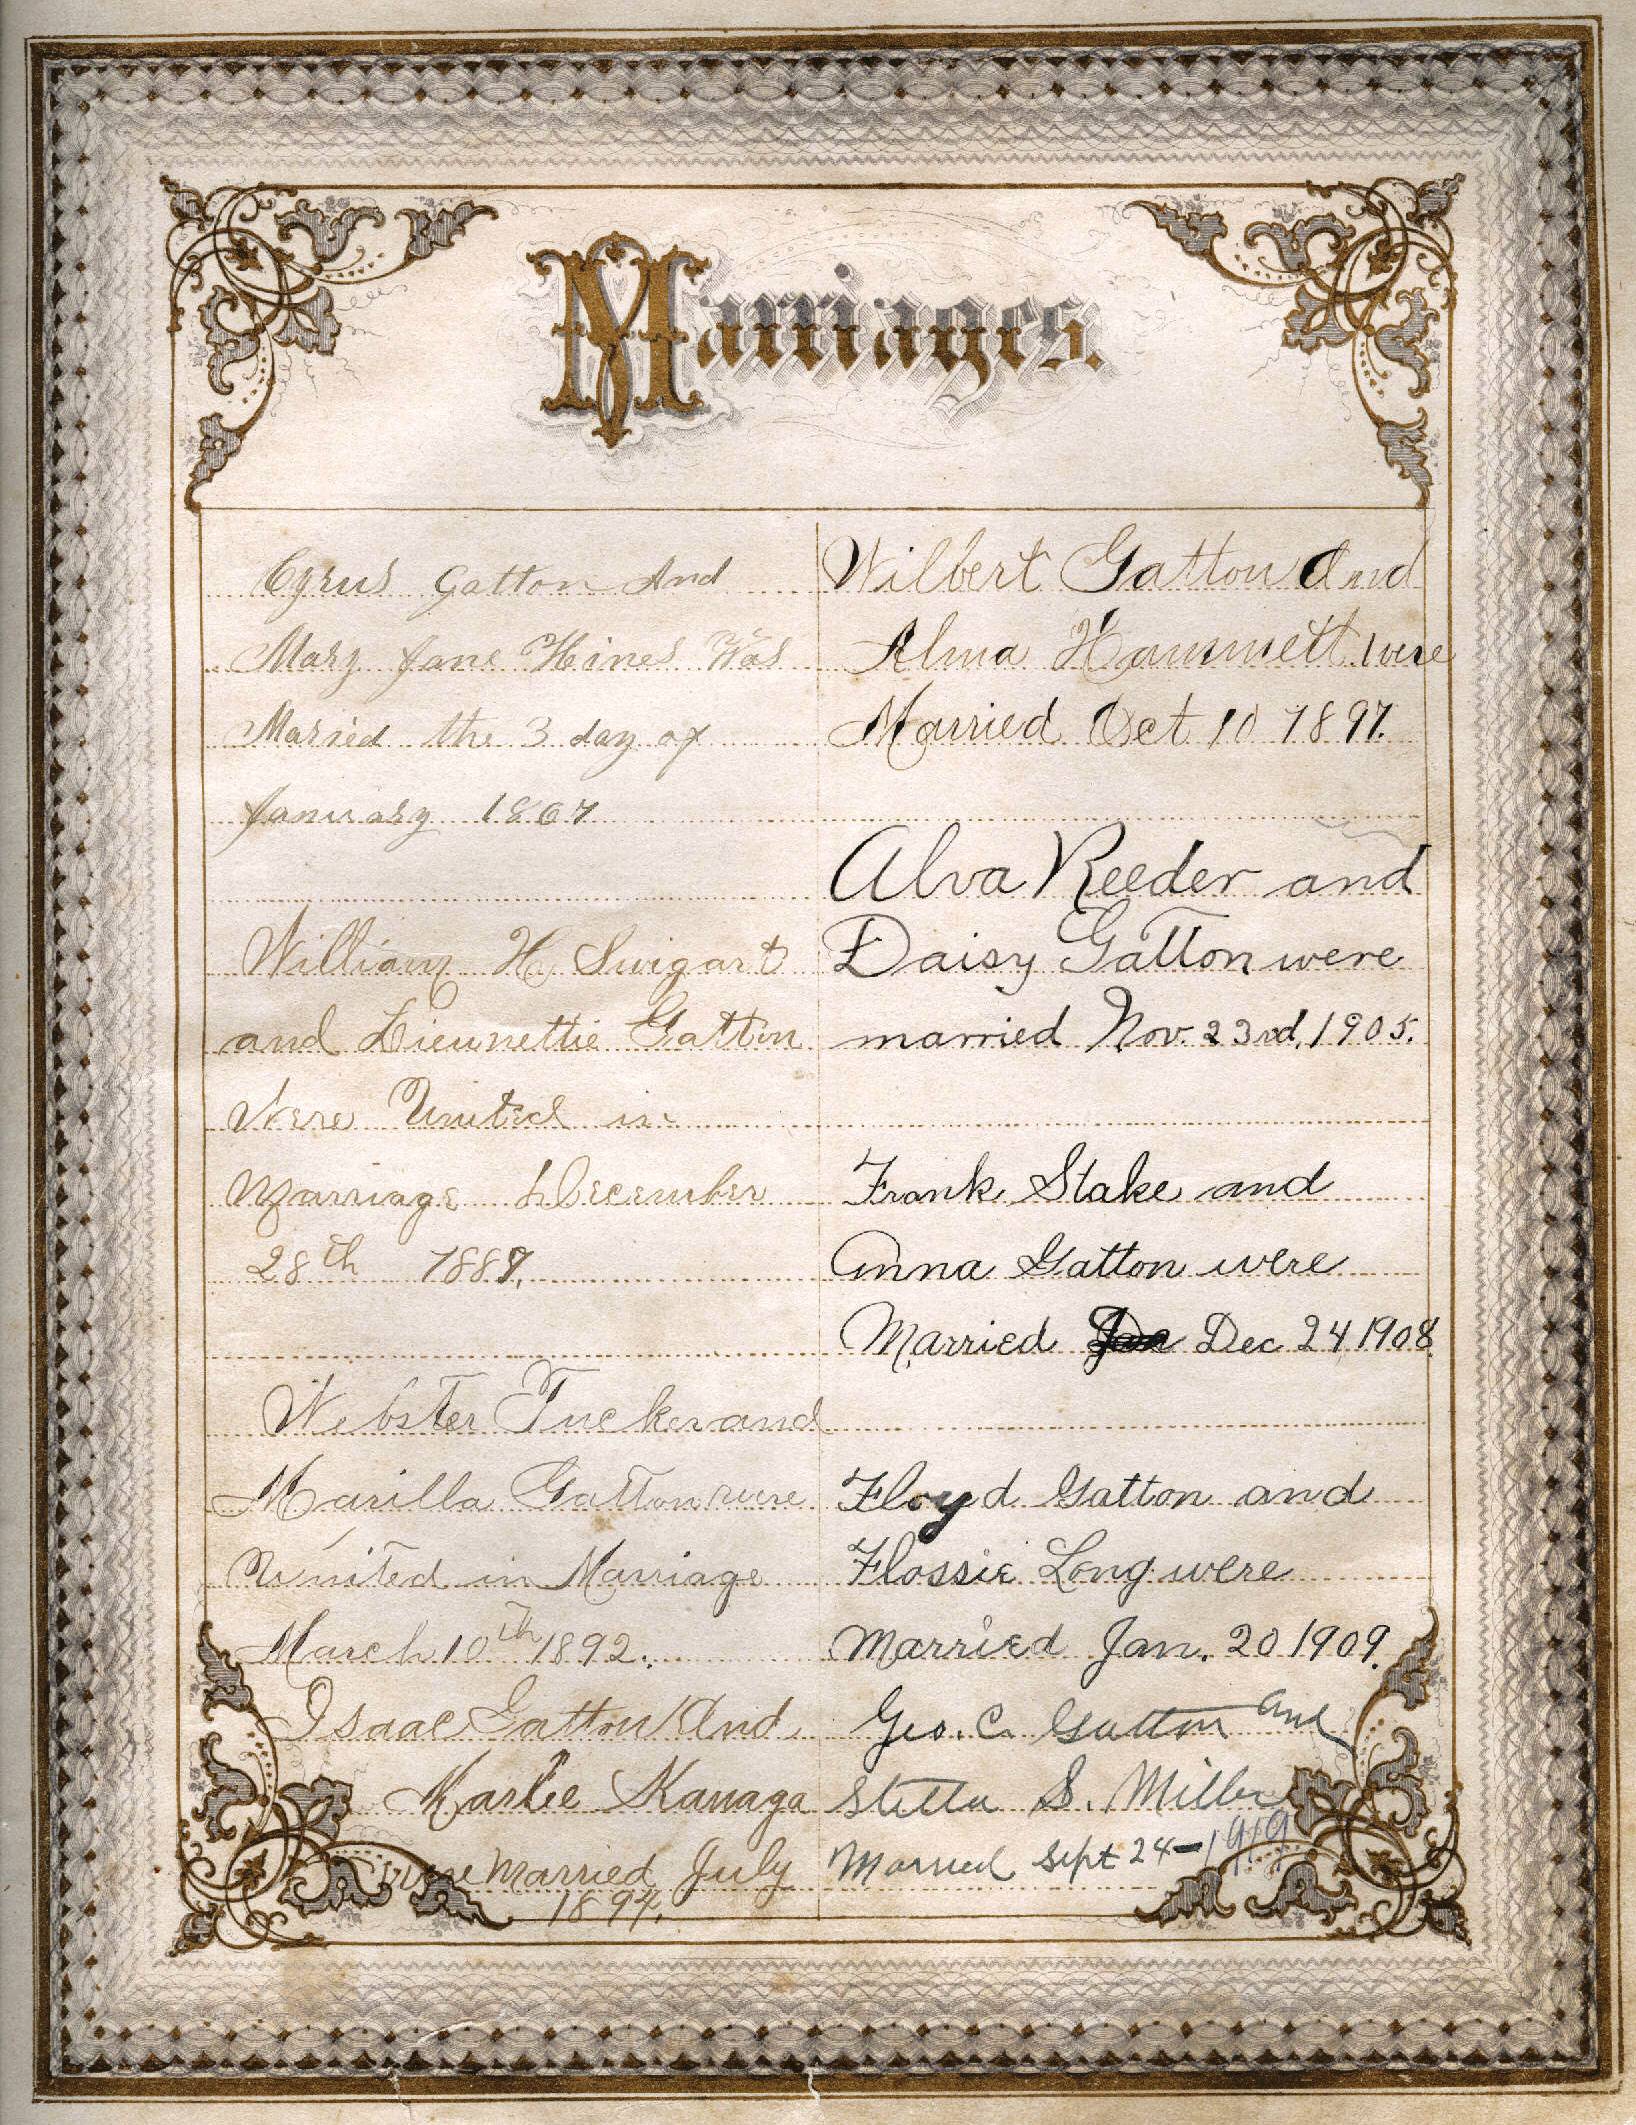 Marriages.
Cyrus Gatton And
Mary Jane Hines Was
Maried the 3 day of
January 1867
William H. Swigart
and Lieunettie Gatton
Were United in
Marriage December
28th 1887.
Webster Tucker and
Marilla Gatton were
United in Marriage
March 10th 1892.
Isaac Gatton And
Kanaga
were Married July
1894.
Wilbert Gatton And
Alma Hammett were
Married Oct 10 1897.
Alva Reeder and
Daisy Gatton were
married Nov. 23rd, 1905.
Frank Stake and
Anna Gatton were
Married Dec 24 1908
Floyd Gatton and
Flossie Long were
Married Jan. 20 1909.
Geo. C. Gatton and
Stella S. Miller
Married Sept 24-1919